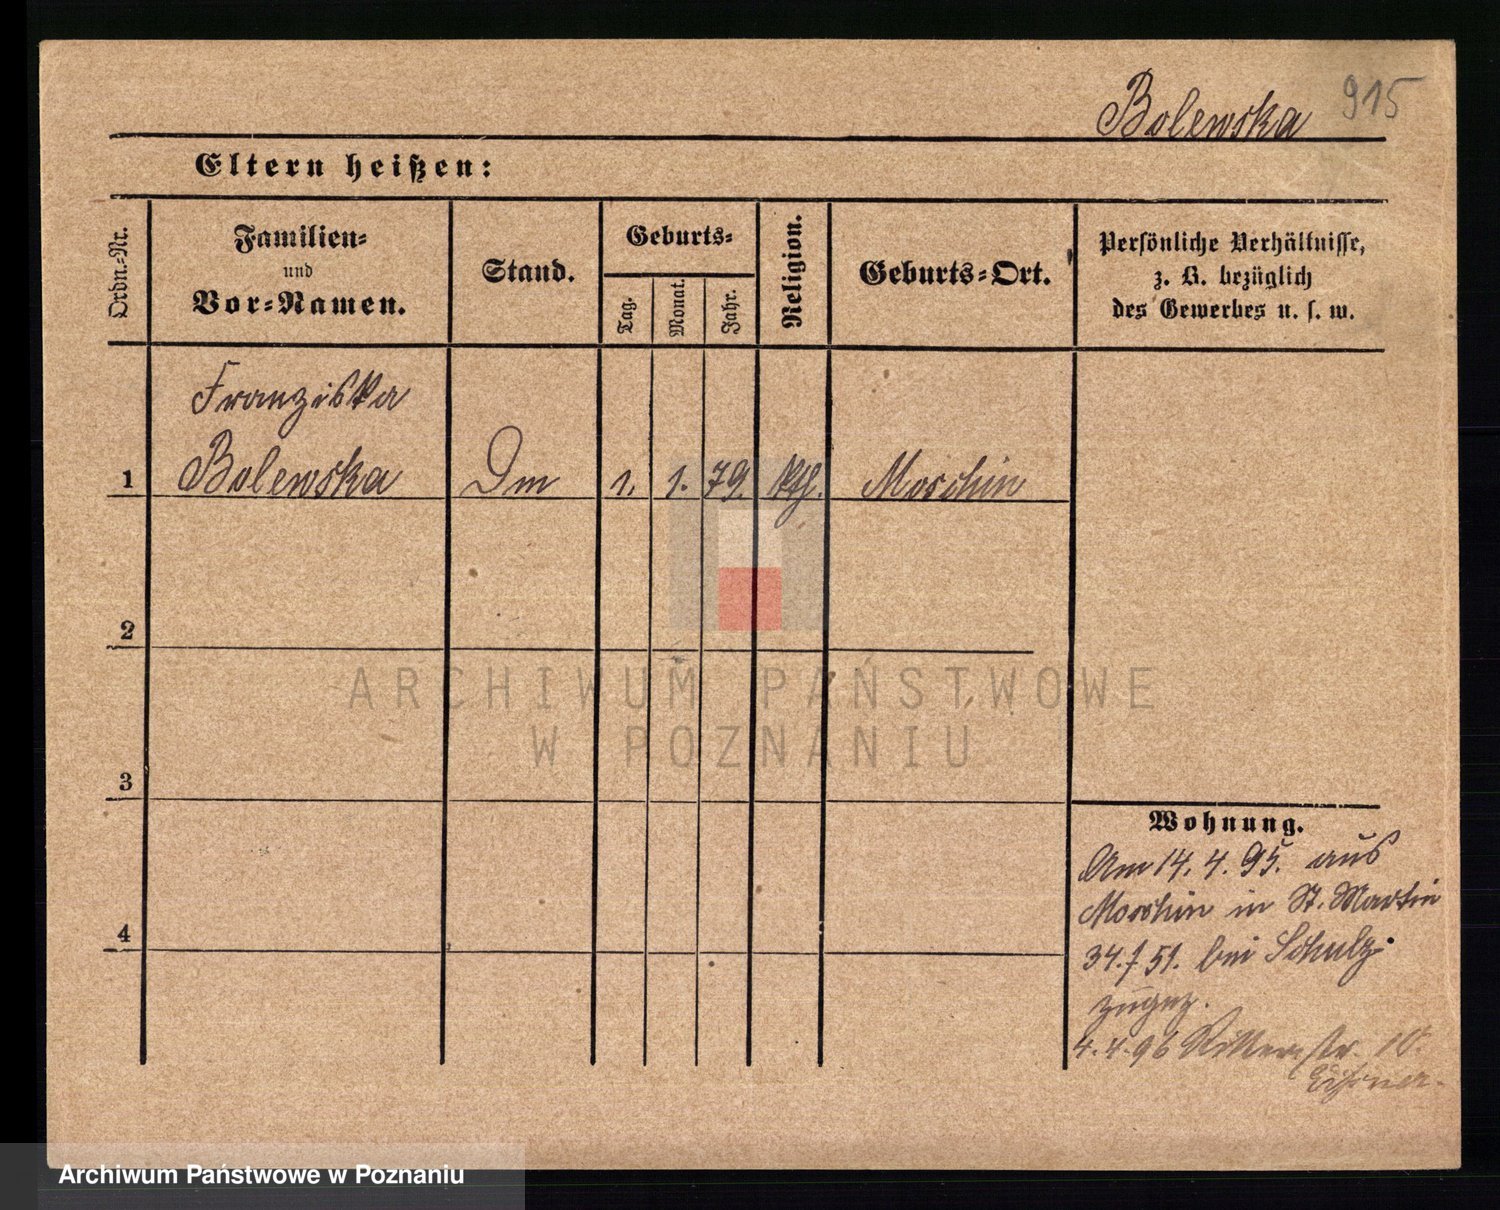 Bolewska 915
Eltern heißen:
Ordn.-Nr.
Familien-
und
Vor-Namen.
Stand.
Geburts-
Tag.
Monat.
Jahr.
Religion.
Geburts-Ort.
Persönliche Verhältnisse,
z. B. bezüglich
des Gewerbes u. s. w.
Franziska
1 Bolewska Dm 1. 1. 79. kth. Moschin
2
3
4
ARCHIWUM PAŃSTWOWE
W POZNANIU
Wohnung.
Am 14. 4. 95. aus
Moschin in St. Martin
34. f 51. bei Schulz
zugez.
4. 4. 96 Ritterstr. 10.
Archiwum Państwowe w Poznaniu